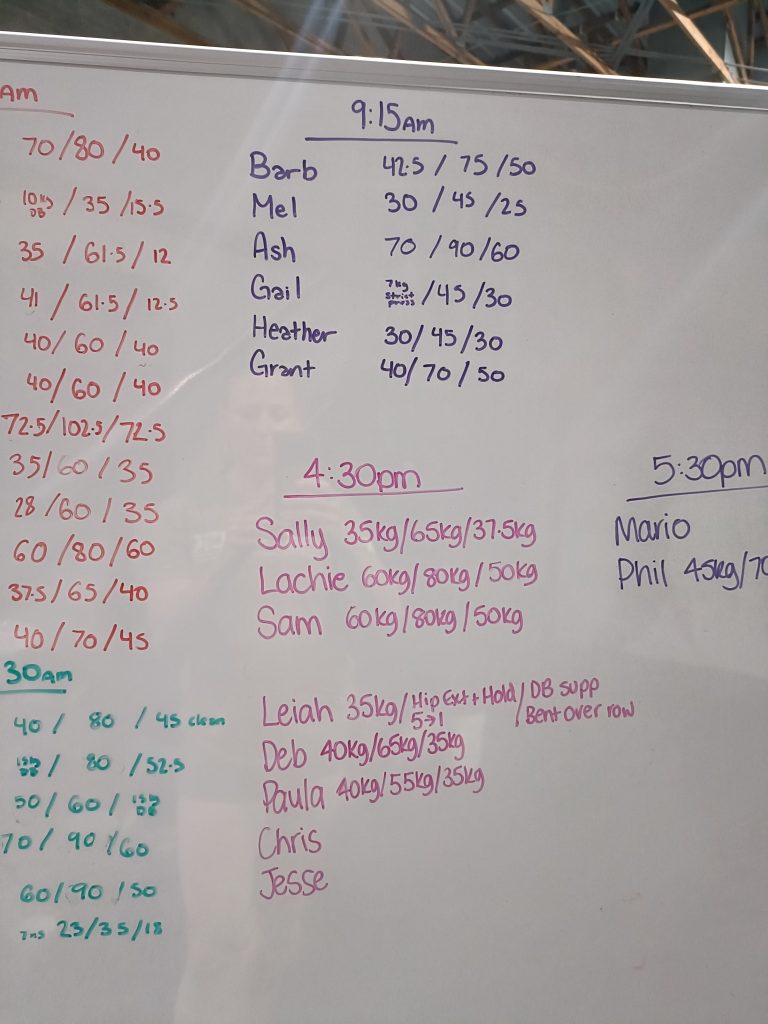 Am
70/80/40
10kg DB / 35 /15.5
35 / 61.5 / 12
41 / 61.5 / 12.5
40/60/40
40/60/40
72.5/102.5/72.5
35/60/35
28/60/35
60/80/60
37.5/65/40
40/70/45
30am
40 / 80 / 45 clean
/ 80 / 52.5
50/60/
70/90/60
60/90/50
23/35/18
9:15Am
Barb 42.5 / 75 /50
Mel 30 / 45 /25
Ash 70 / 90/60
Gail 7kg strict press /45/30
Heather 30/45/30
Grant 40/70/50
4:30pm
Sally 35kg/65kg/37.5kg
Lachie 60kg/80kg/50kg
Sam 60kg/80kg/50kg
Leiah 35kg/Hip Ext + Hold 5→1/DB supp Bent over row
Deb 40kg/65kg/35kg
Paula 40kg/55kg/35kg
Chris
Jesse
5:30pm
Mario
Phil 45kg/70